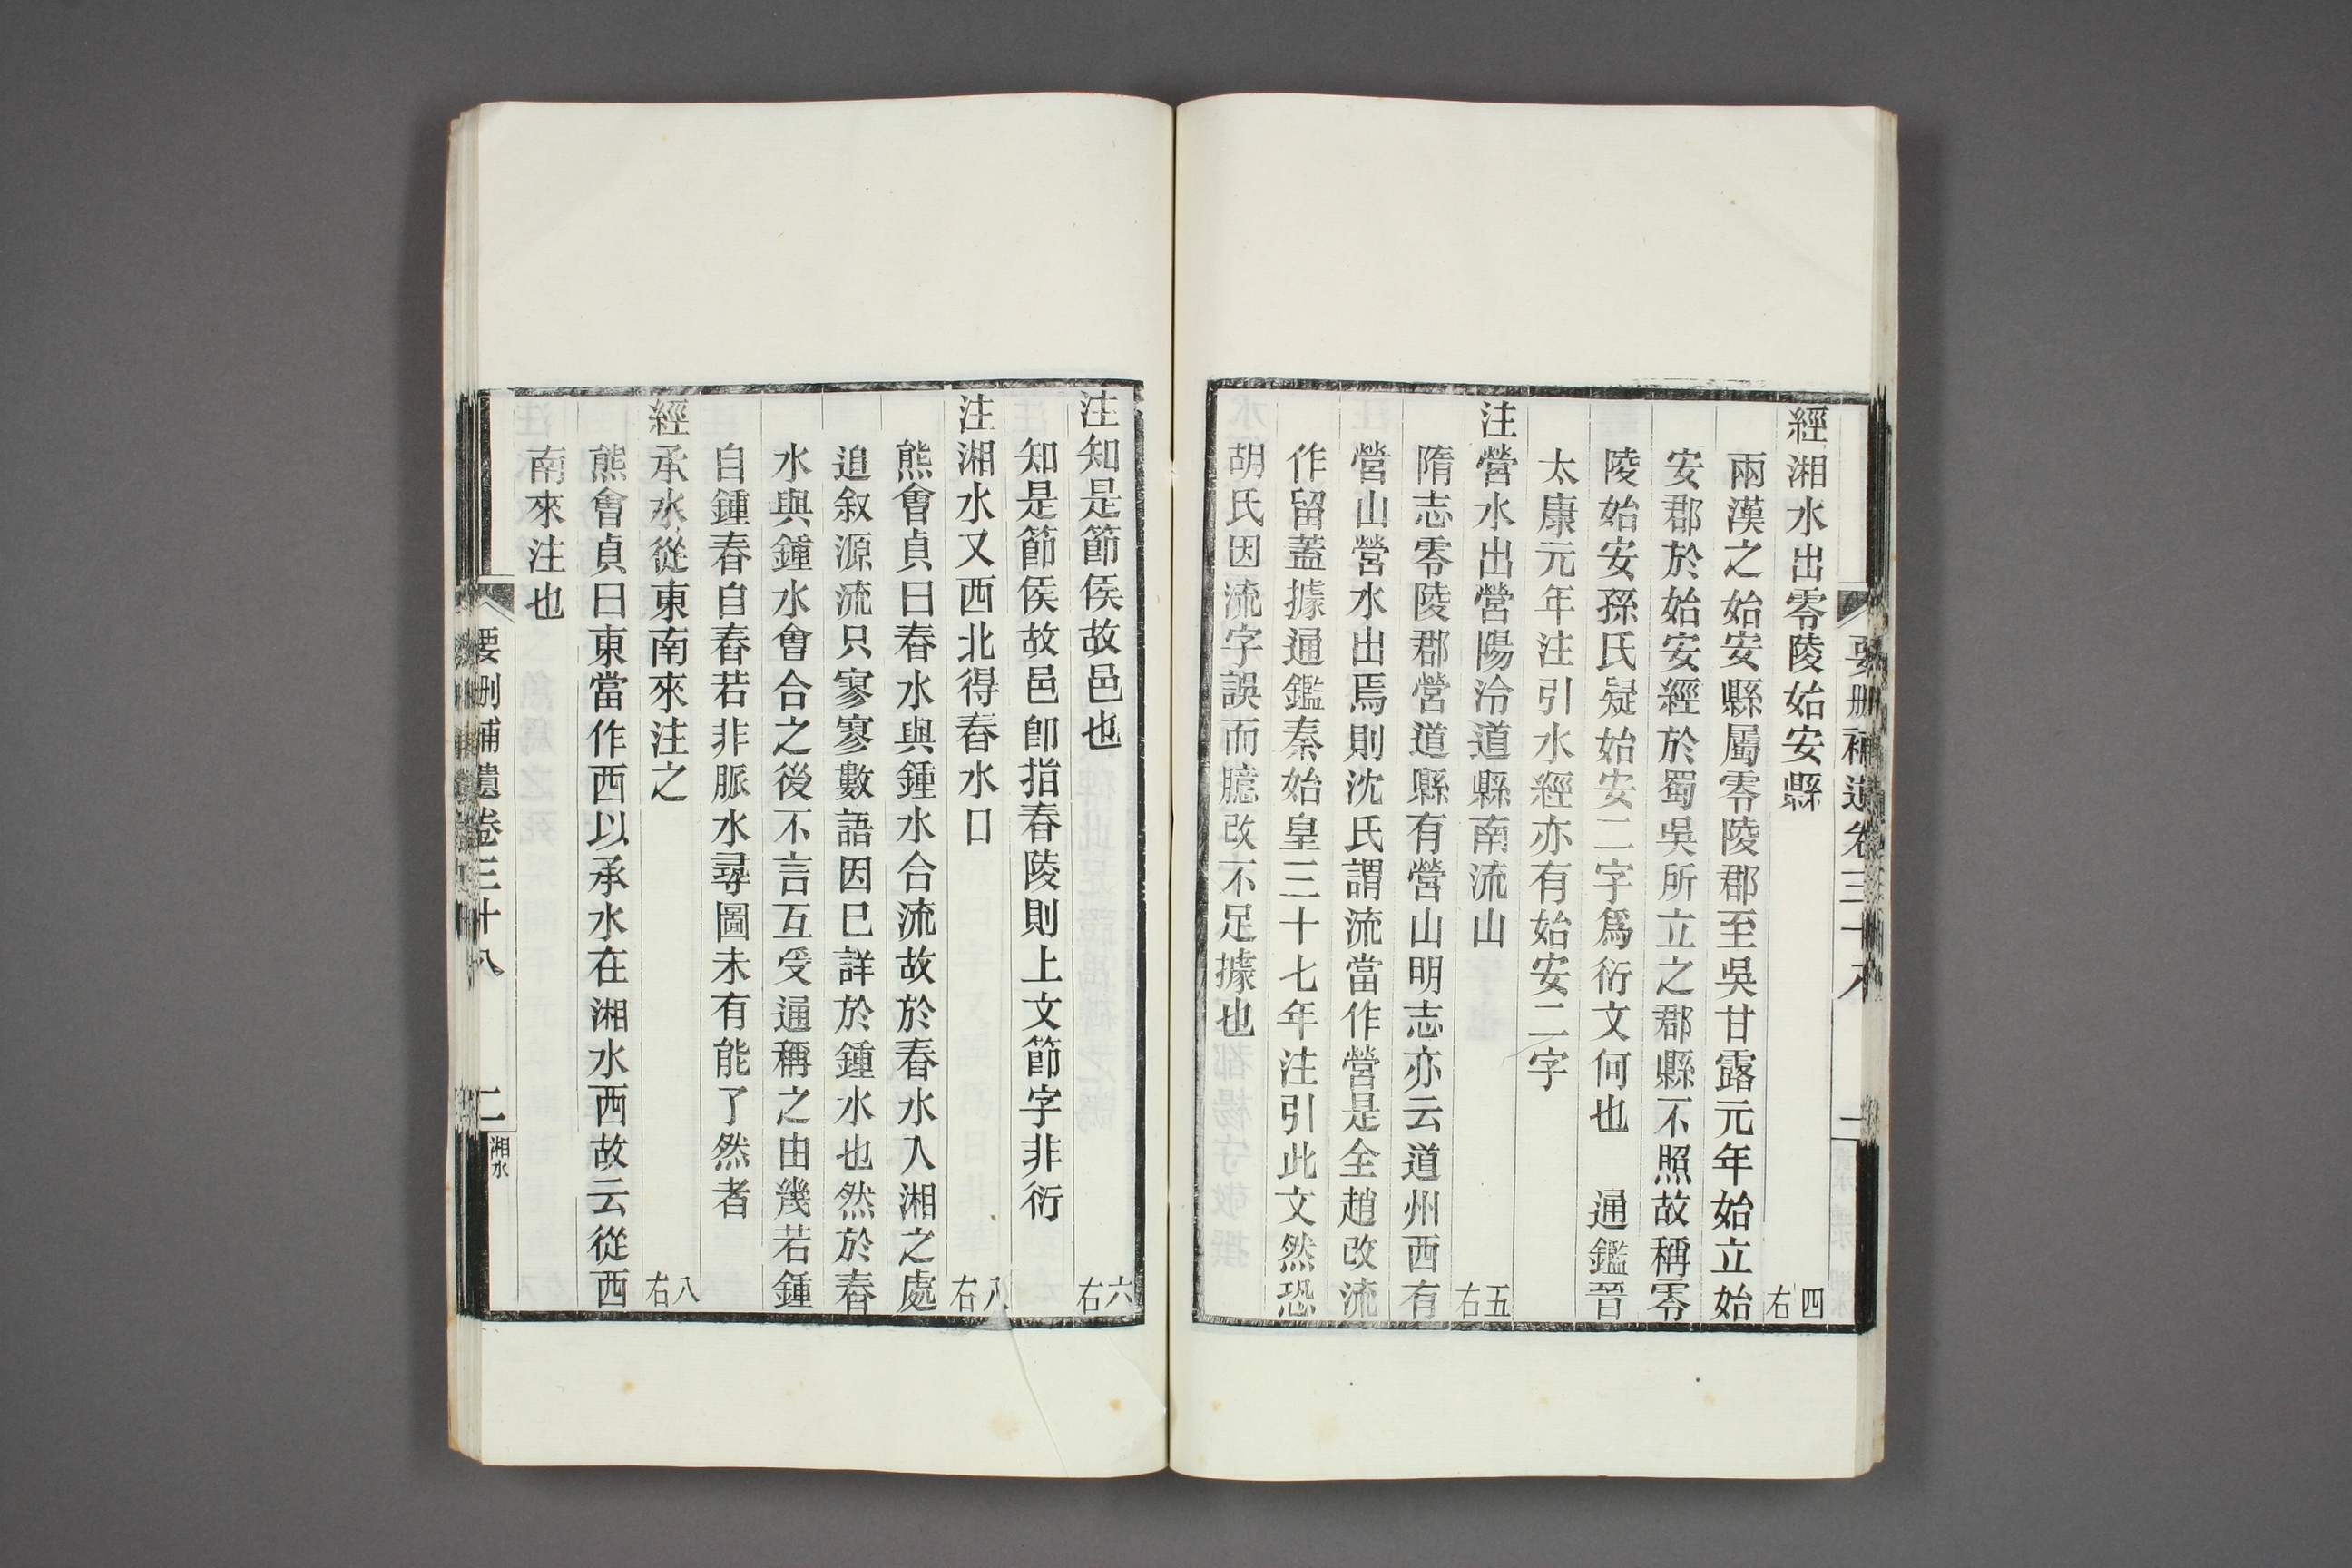 經湘水出零陵始安縣 四右
兩漢之始安縣屬零陵郡至吳甘露元年始立始
安郡於始安經於蜀吳所立之郡縣不照故稱零
陵始安孫氏疑始安二字爲衍文何也 通鑑晉
太康元年注引水經亦有始安二字
注營水出營陽泠道縣南流山 五右
隋志零陵郡營道縣有營山明志亦云道州西有
營山營水出焉則沈氏謂流當作營是全趙改流
作留蓋據通鑑秦始皇三十七年注引此文然恐
胡氏因流字誤而臆改不足據也
注知是節侯故邑也 六右
知是節侯故邑卽指舂陵則上文節字非衍
注湘水又西北得舂水口 八右
熊會貞曰舂水與鍾水合流故於舂水入湘之處
追叙源流只寥寥數語因已詳於鍾水也然於舂
水與鍾水會合之後不言互受通稱之由幾若鍾
自鍾舂自舂若非脈水尋圖未有能了然者
經承水從東南來注之 八右
熊會貞曰東當作西以承水在湘水西故云從西
南來注也
要刪補遺卷三十八 二 湘水